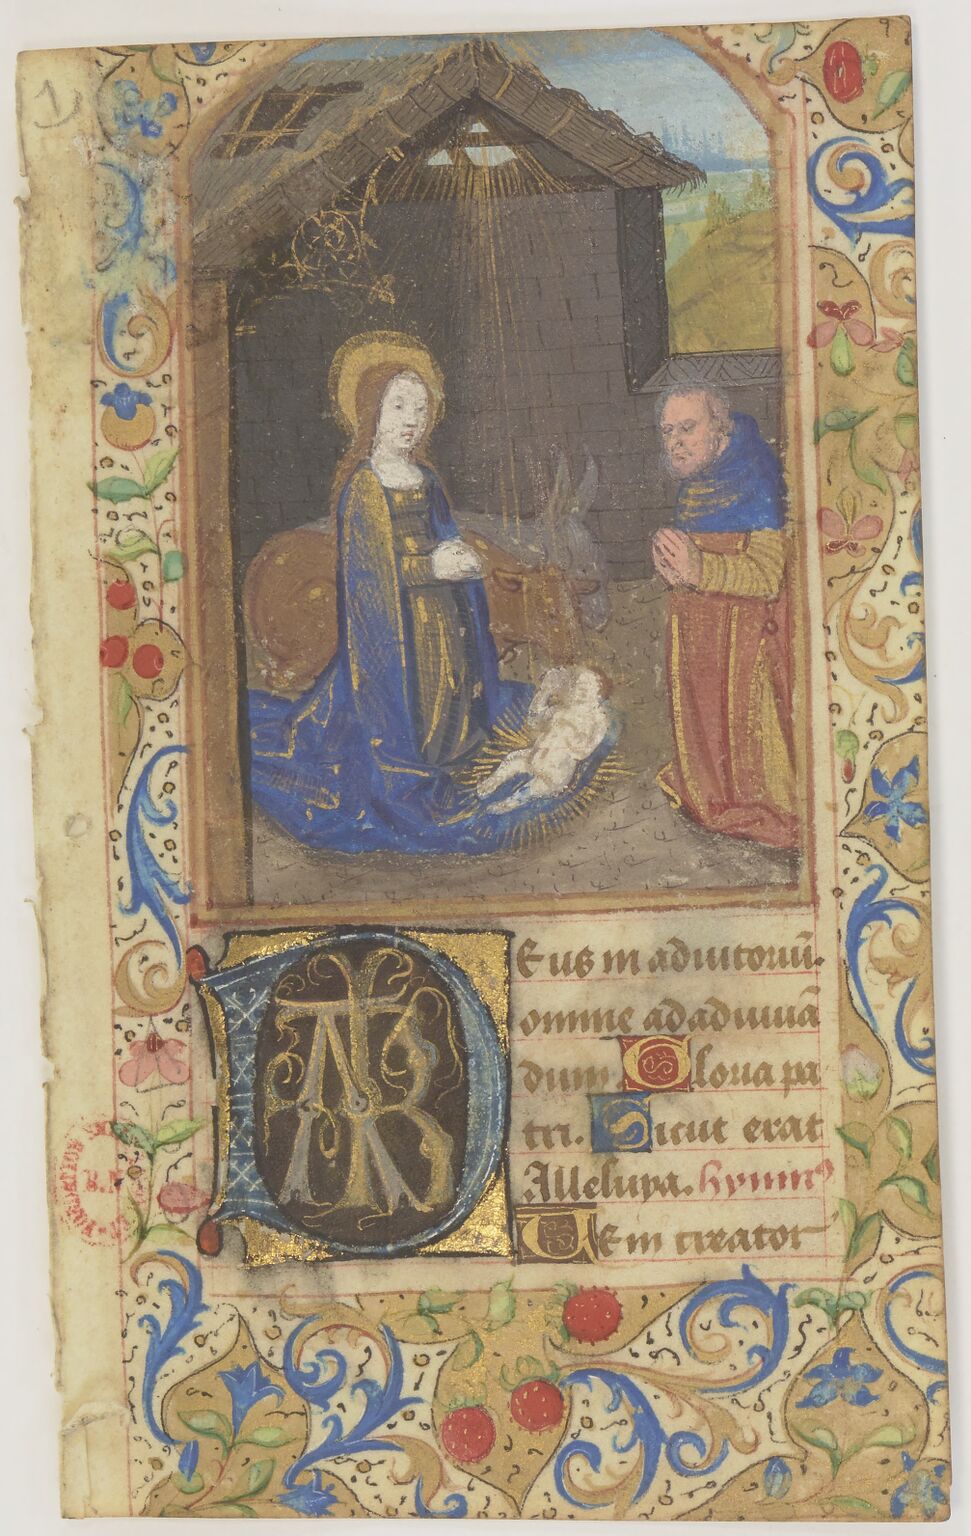 Deus in adiutoriū.
omine ad adiuuā
dum. Gloria pa
tri. Sicut erat
Alleluya. hymnꝰ
Veni creator